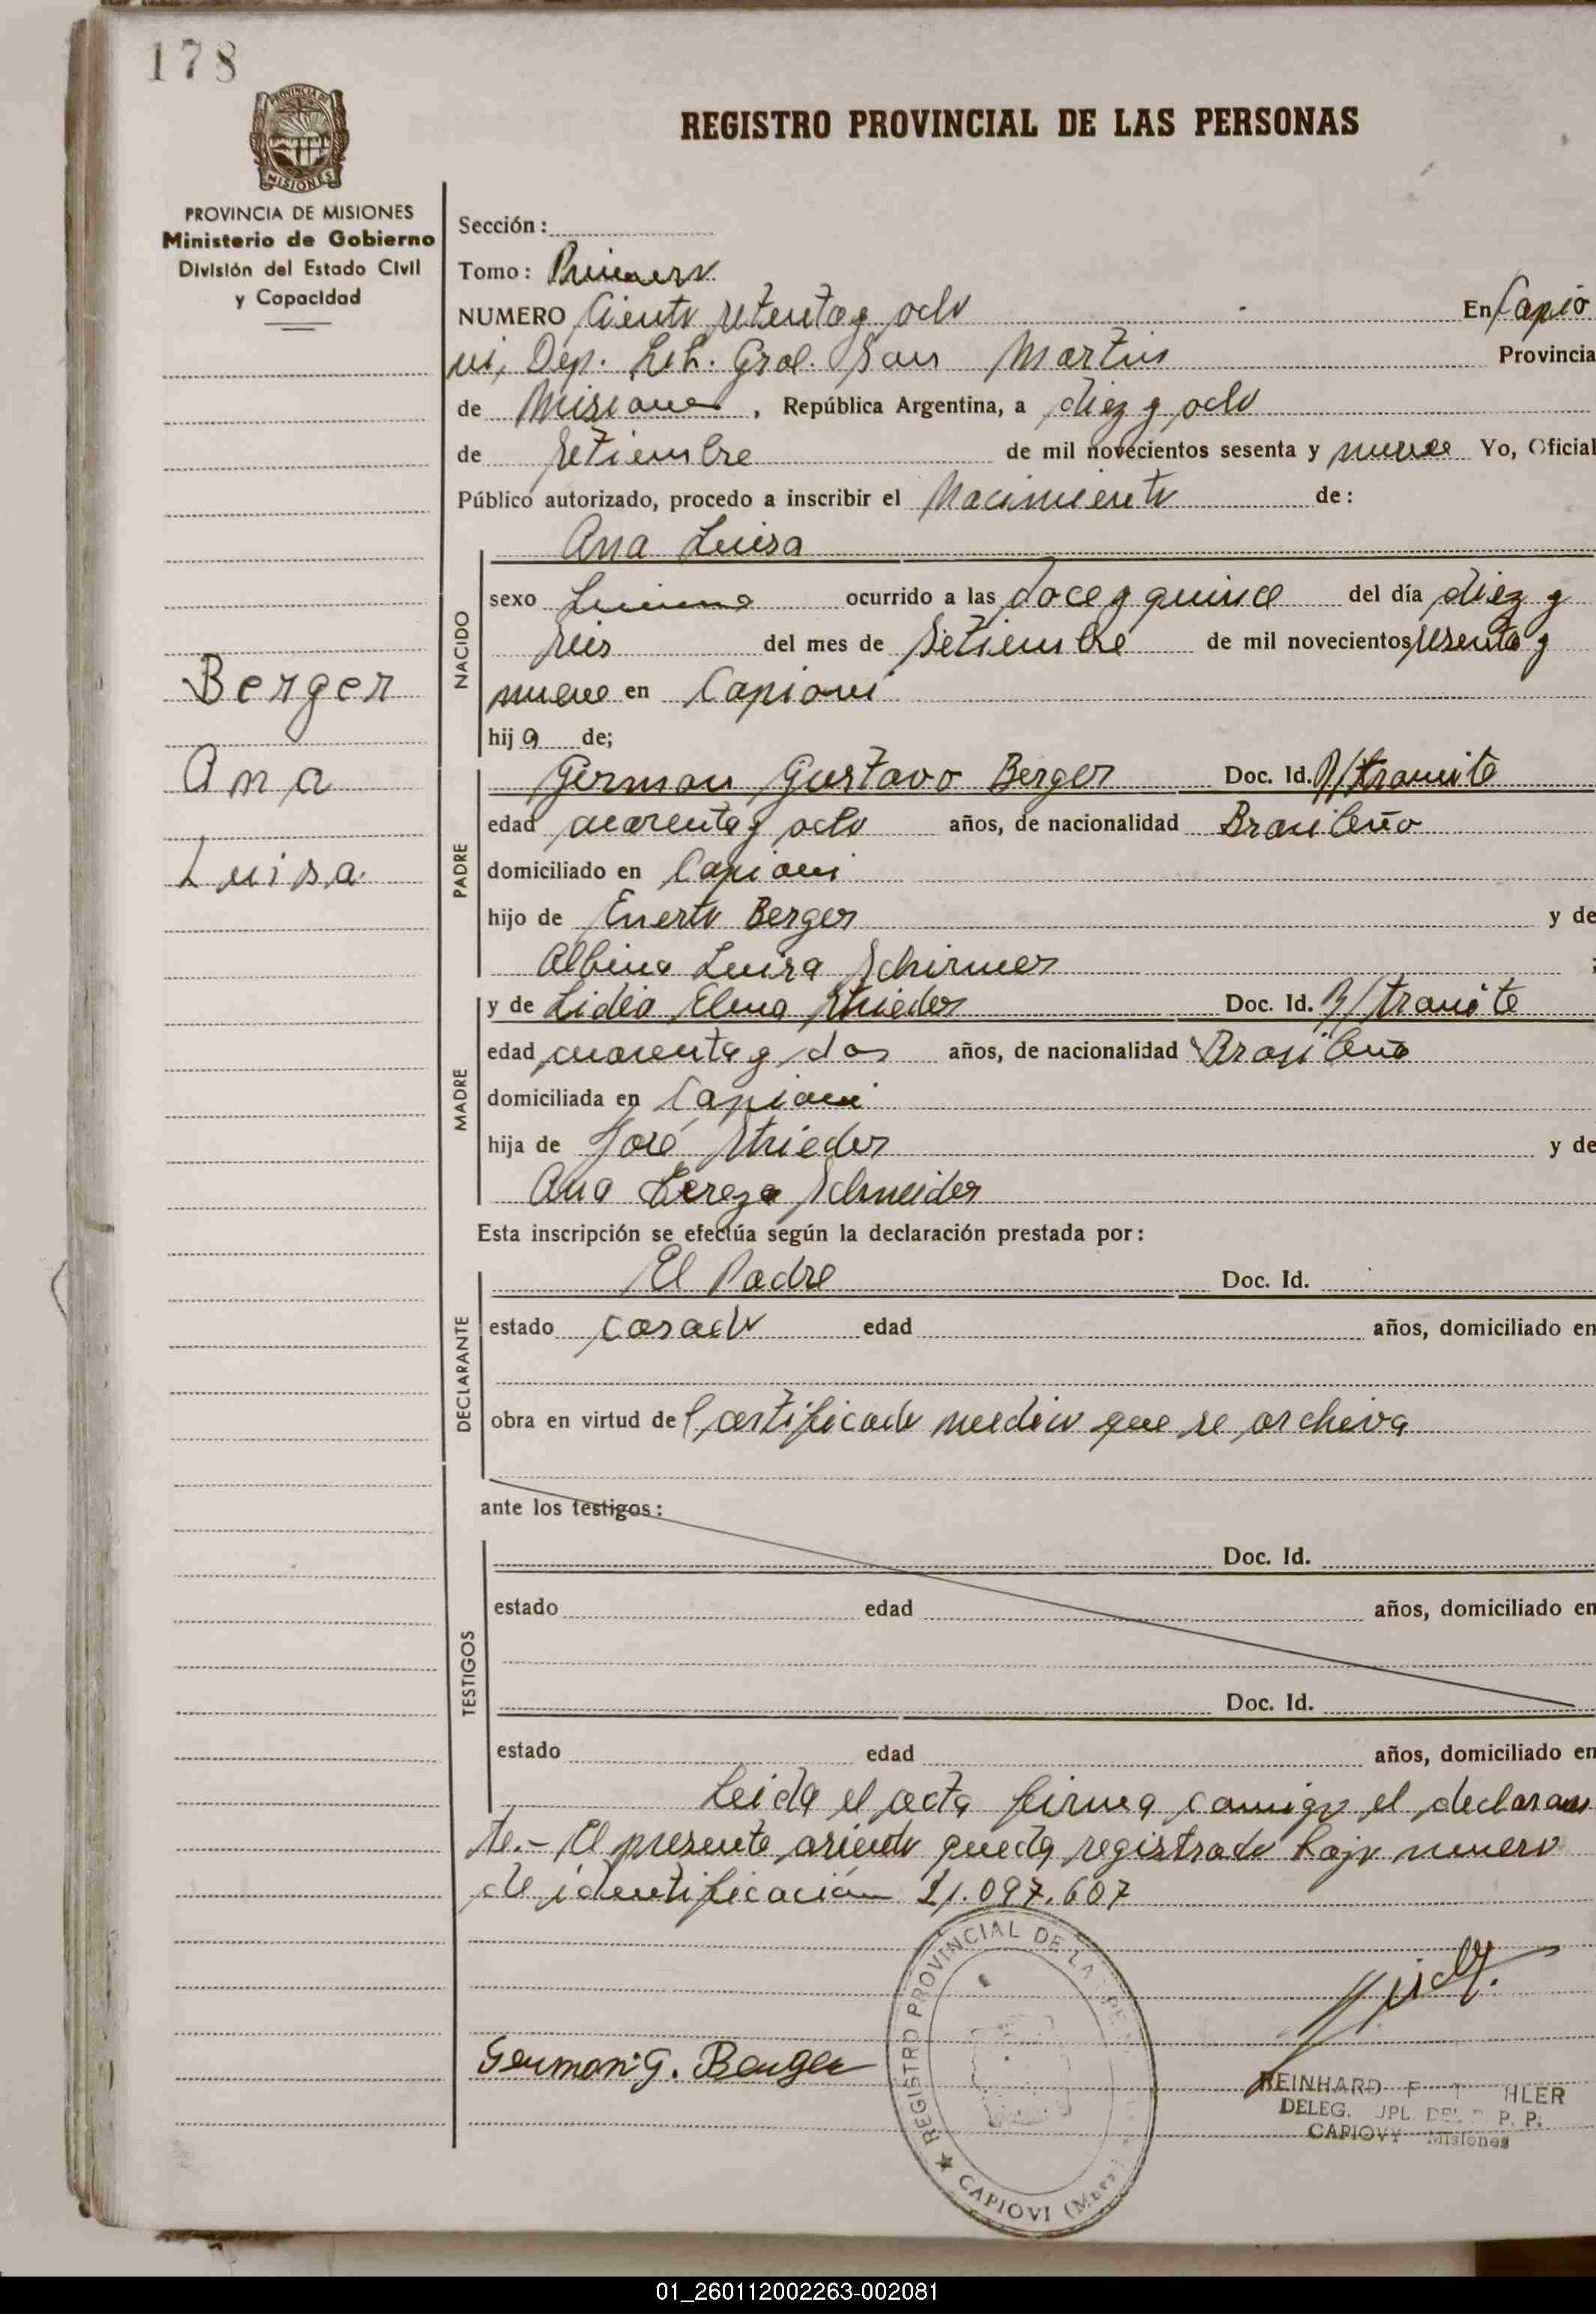 178
REGISTRO PROVINCIAL DE LAS PERSONAS
PROVINCIA DE MISIONES
Ministerio de Gobierno
División del Estado Civil
y Capacidad
Sección:
Tomo: Primero
NUMERO Ciento setenta y ocho En Capio
vi, Dep. Lib. Gral. San Martin Provincia
de Misiones, República Argentina, a diez y ocho
de Setiembre de mil novecientos sesenta y nueve Yo, Oficial
Público autorizado, procedo a inscribir el Nacimiento de:
Ana Luisa
NACIDO
sexo ocurrido a las doce y quince del día diez y
seis del mes de Setiembre de mil novecientos sesenta y
nueve en Capiovi
hija de;
Berger
Ana
Luisa
PADRE
German Gustavo Berger Doc. Id. R/tramite
edad cuarenta y ocho años, de nacionalidad Brasileño
domiciliado en Capiovi
hijo de Berger y de
Albina Luisa Schirmer ;
MADRE
y de Lidia Elena Strieder Doc. Id. R/tramite
edad cuarenta y dos años, de nacionalidad Brasileña
domiciliada en Capiovi
hija de José Strieder y de
Ana Tereza Schneider
Esta inscripción se efectúa según la declaración prestada por:
DECLARANTE
El Padre Doc. Id.
estado casado edad años, domiciliado en
obra en virtud de Certificado medico que se archiva
ante los testigos:
TESTIGOS
Doc. Id.
estado edad años, domiciliado en
Doc. Id.
estado edad años, domiciliado en
Leida el acta firma conmigo el declaran
te.- El presente asiento queda registrado bajo numero
de identificación 21.097.607
REGISTRO PROVINCIAL DE LA
CAPIOVI
German G. Berger
REINHARD F HLER
DELEG. P. P.
CAPIOVY Misiones
01_260112002263-002081